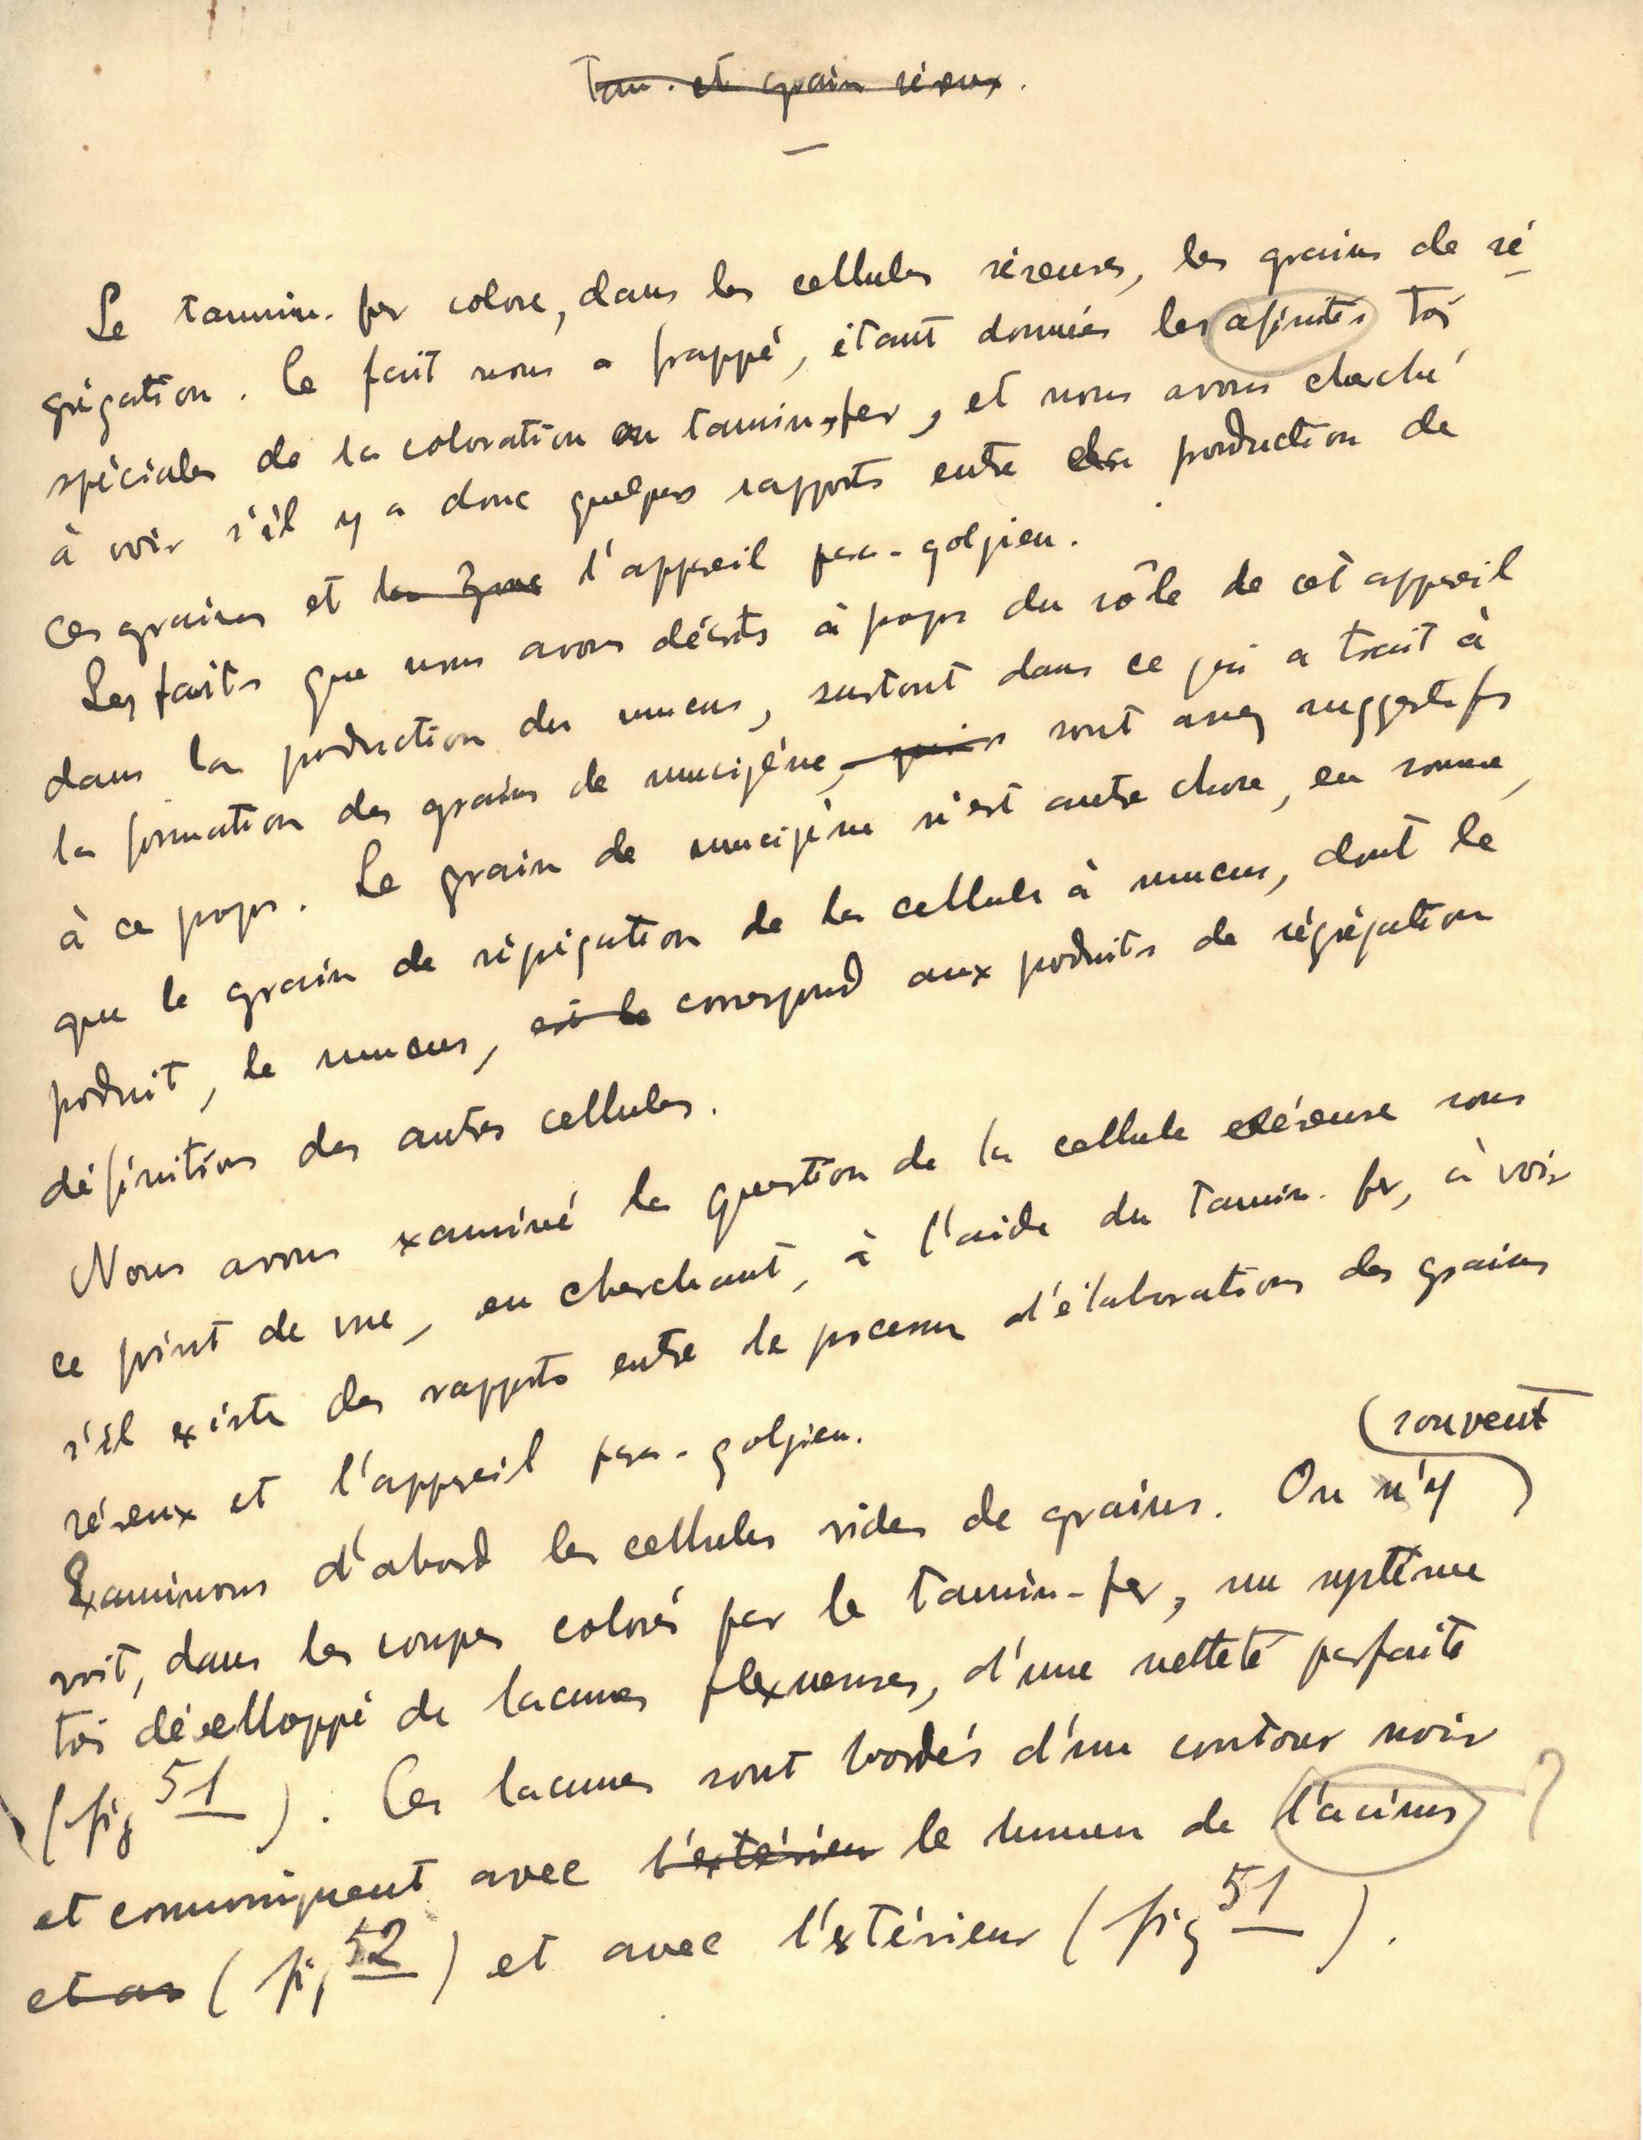 Tan. et grain séreux.
Le tannin-fer colore, dans les cellules séreuses, les grains de sé
grégation. Ce fait nous a frappé, étant données les afinités très
spéciales de la coloration au tannin-fer, et nous avons cherché
à voir s'il y a donc quelques rapports entre la production de
ces grains et la zone l'appareil para-golgien.
Les faits que nous avons décrits à propos du rôle de cet appareil
dans la production du mucus, surtout dans ce qui a trait à
la formation des grains de mucigène, sont assez suggestifs
à ce propos. Le grain de mucigène n'est autre chose, en somme,
que le grain de ségrégation de la cellule à mucus, dont le
produit, le mucus, est le correspond aux produits de ségrégation
définitions des autres cellules.
Nous avons examiné la question de la cellule séreuse sous
ce point de vue, en cherchant, à l'aide du tannin-fer, à voir
s'il existe des rapports entre le processus d'élaborations des grains
séreux et l'appareil para-golgien.
souvent
Examinons d'abord les cellules vides de grains. On n'y
voit, dans les coupes colorés par le tannin-fer, un système
très dévelloppé de lacunes flexueuses, d'une netteté parfaite
(fig 51). Ces lacunes sont bordés d'un contour noir
et comuniquent avec l'extérieur le lumen de l'acinus ?
et as (fig 52) et avec l'extérieur (fig 51).